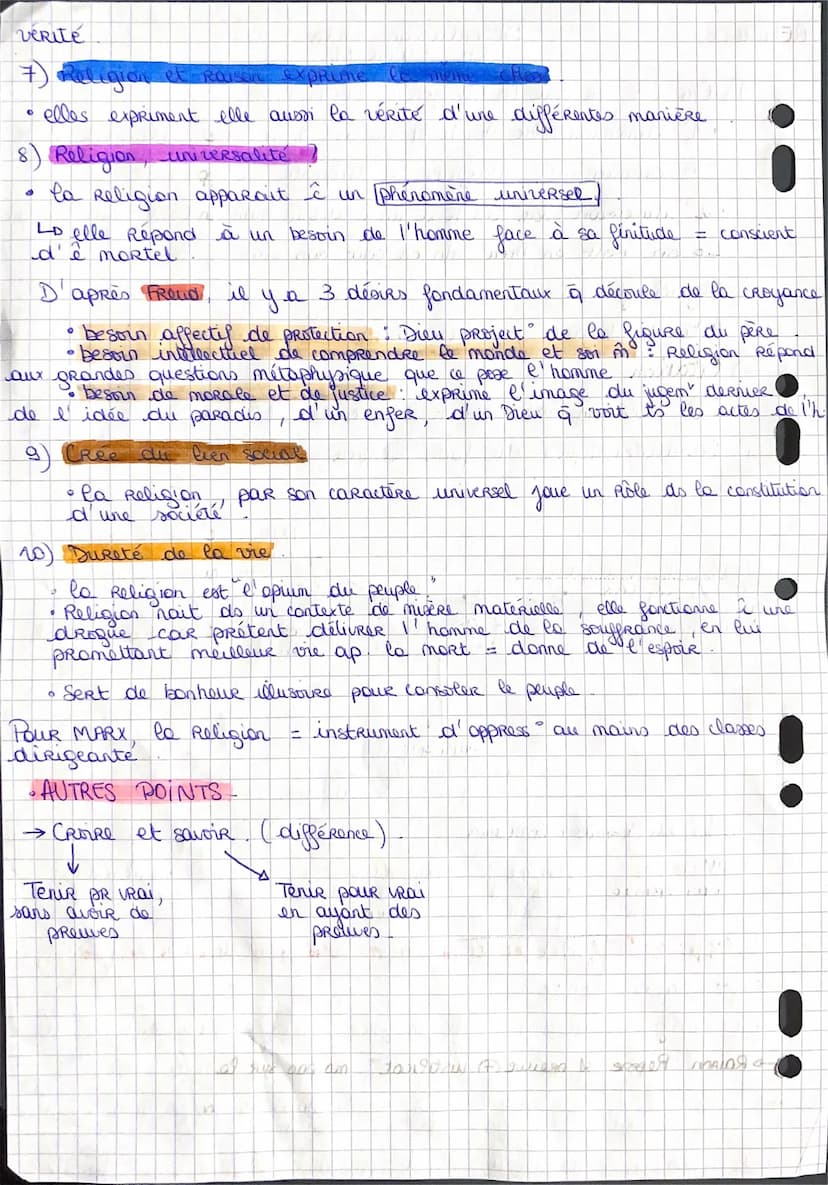 VÉRITÉ.
7) Religion et Raison exprime la même chose.
• elles expriment elle aussi la vérité d'une différentes manière
8) Religion, universalité ?
• la Religion apparait ê un phénomène universel.
↳ elle Répond à un besoin de l'homme face à sa finitude = conscient
d'ê mortel.
D'après Freud, il y a 3 désirs fondamentaux q̄ découle de la croyance
• besoin affectif de protection : Dieu, project° de la figure du père.
• besoin intellectuel de comprendre le monde et soi m̂ : Religion Répond
aux grandes questions métaphysique que ce pose l'homme.
• besoin de morale et de justice : exprime l'image du jugemt dernier
de l'idée du paradis, d'un enfer, d'un Dieu q̄ voit ts les actes de l'h
9) Crée du lien social
• la Religion, par son caractère universel joue un Rôle ds la constitution
d'une société.
10) Dureté de la vie.
• la Religion est "l'opium du peuple"
• Religion nait ds un contexte de misère matérielle, elle fonctionne ê une
drogue car prétent délivrer l'homme de la souffrance, en lui
promettant meilleur vie ap. la mort = donne de l'espoir.
• Sert de bonheur illusoire pour consoler le peuple.
Pour MARX, la Religion = instrument d'oppress° au mains des classes
dirigeante.
• AUTRES POINTS
→ Croire et savoir. (différence).
Tenir pr vrai,
sans avoir de
preuves
Tenir pour vrai
en ayant des
preuves.